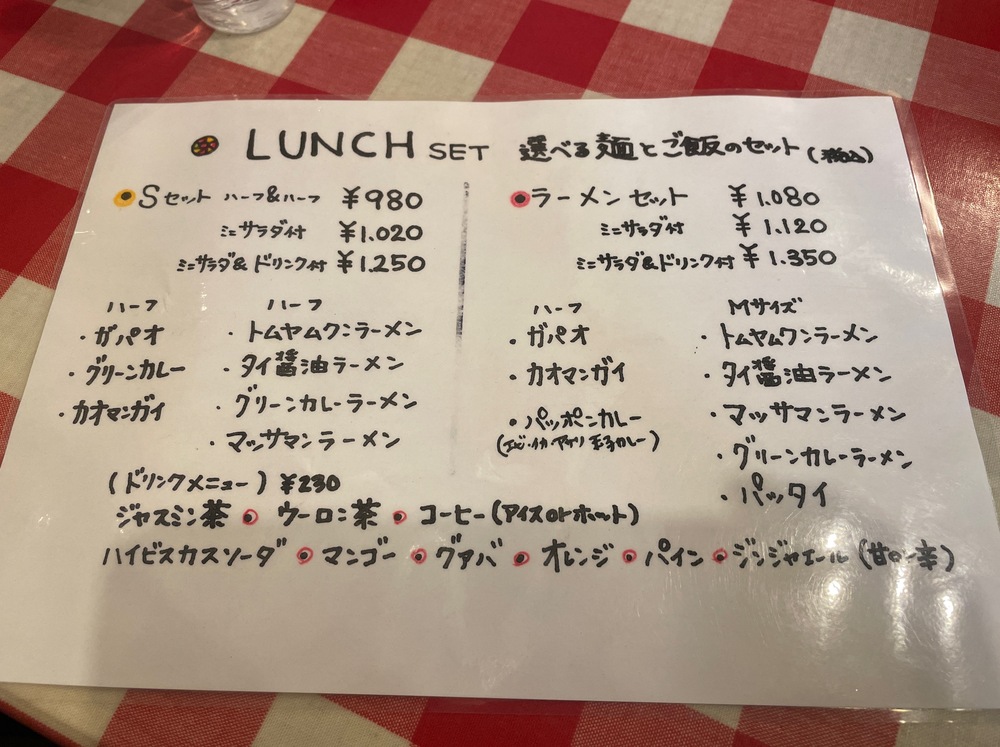 LUNCH SET 選べる麺とご飯のセット (税込)
Sセット ハーフ&ハーフ ¥980
ミニサラダ付 ¥1.020
ミニサラダ&ドリンク付 ¥1.250
ハーフ ハーフ
・ガパオ ・トムヤムクンラーメン
・グリーンカレー ・タイ醤油ラーメン
・カオマンガイ ・グリーンカレーラーメン
・マッサマンラーメン
ラーメンセット ¥1.080
ミニサラダ付 ¥1.120
ミニサラダ&ドリンク付 ¥1.350
ハーフ Mサイズ
・ガパオ ・トムヤムクンラーメン
・カオマンガイ ・タイ醤油ラーメン
・パッポンカレー ・マッサマンラーメン
(エビ・イカ・アサリ 玉子カレー) ・グリーンカレーラーメン
・パッタイ
(ドリンクメニュー) ¥230
ジャスミン茶 ウーロン茶 コーヒー(アイスorホット)
ハイビスカスソーダ マンゴー グァバ オレンジ パイン ジンジャエール (甘or辛)